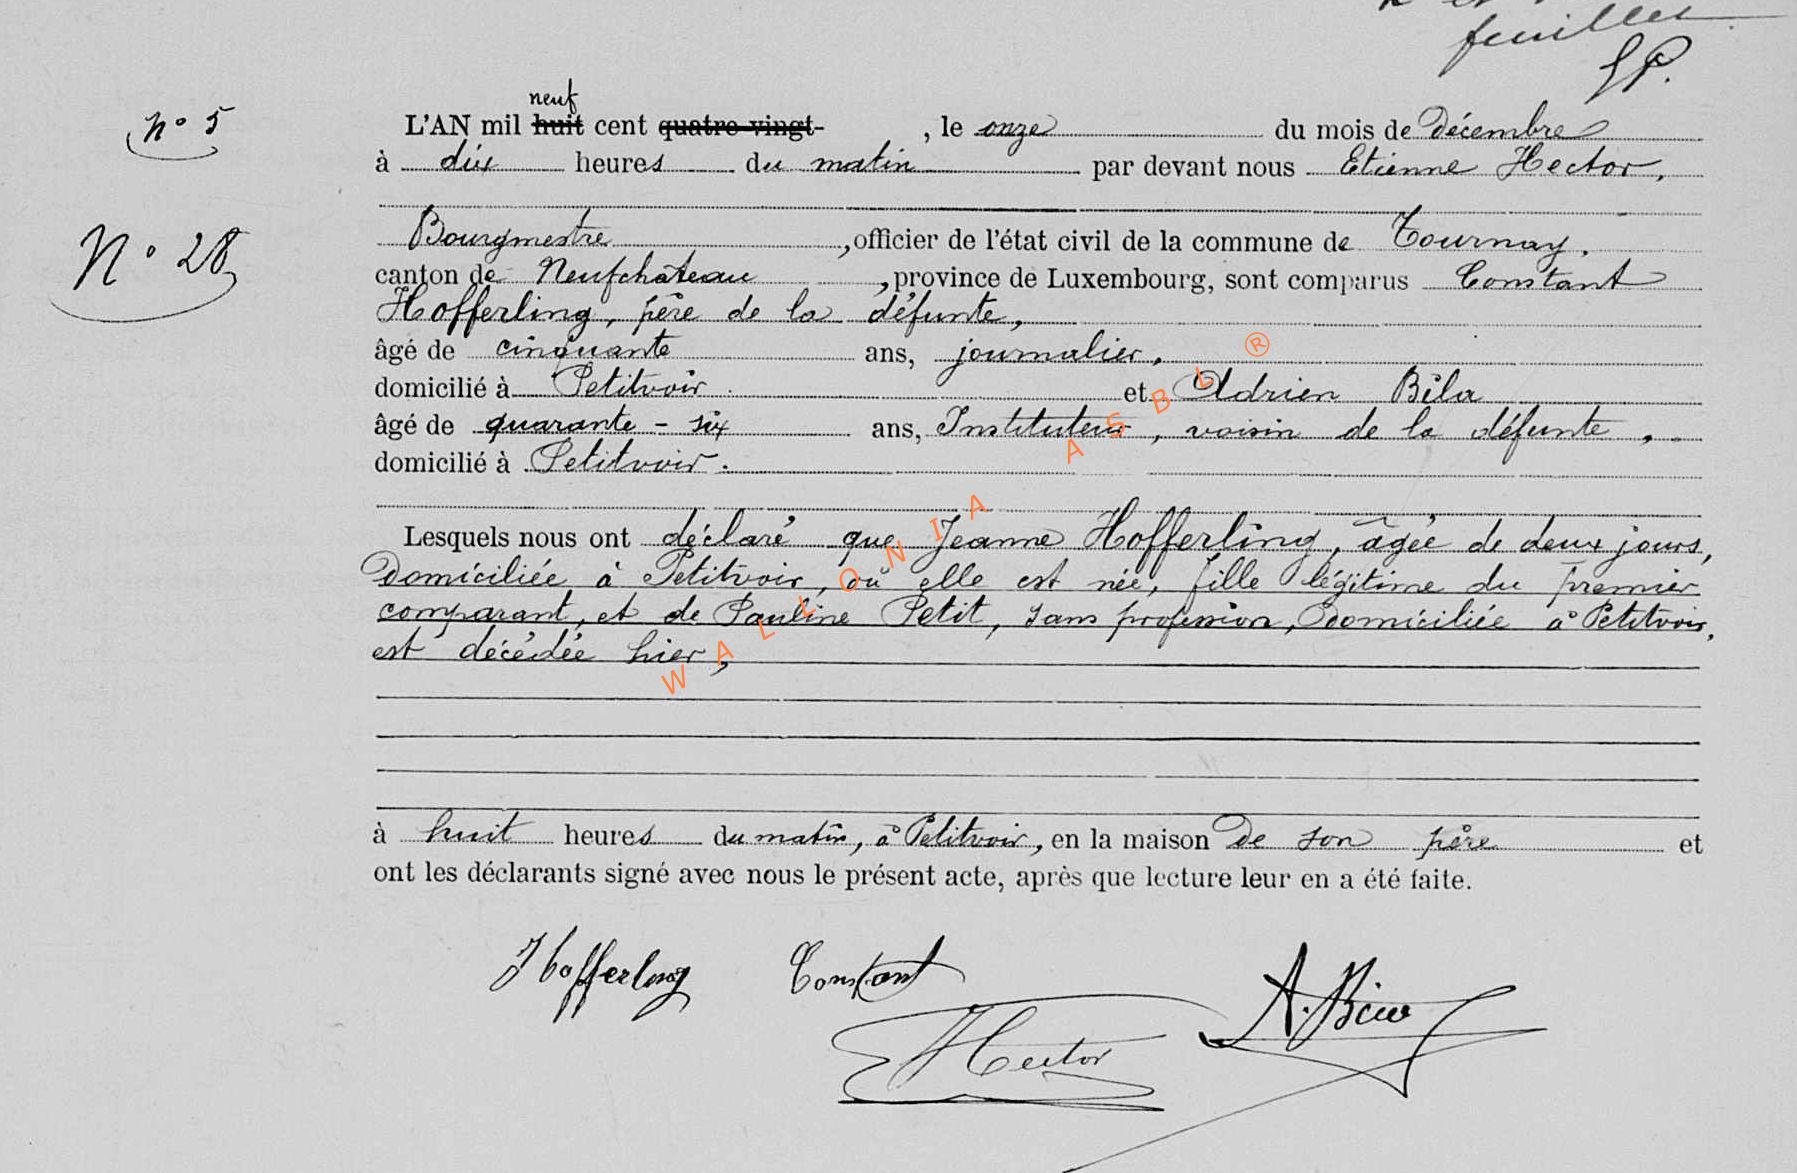 feuillet
n° 5
N° 28
neuf
L'AN mil huit cent quatre-vingt- , le onze du mois de Décembre
à dix heures du matin par devant nous Etienne Hector,
Bourgmestre, officier de l'état civil de la commune de Tournay,
canton de Neufchâteau, province de Luxembourg, sont comparus Constant
Hofferling, père de la défunte,
âgé de cinquante ans, journalier,
domicilié à Petitvoir. et Adrien
âgé de quarante-six ans, Instituteur, voisin de la défunte,
domicilié à Petitvoir.
Lesquels nous ont déclaré que Jeanne Hofferling, âgée de deux jours,
Domiciliée à Petitvoir, où elle est née, fille légitime du premier
comparant, et de Pauline Petit, sans profession, Domiciliée à Petitvoir,
est décédée hier,
à huit heures du matin, à Petitvoir, en la maison De son père et
ont les déclarants signé avec nous le présent acte, après que lecture leur en a été faite.
Hofferling Constant
Hector
WALLONIA ASBL ®